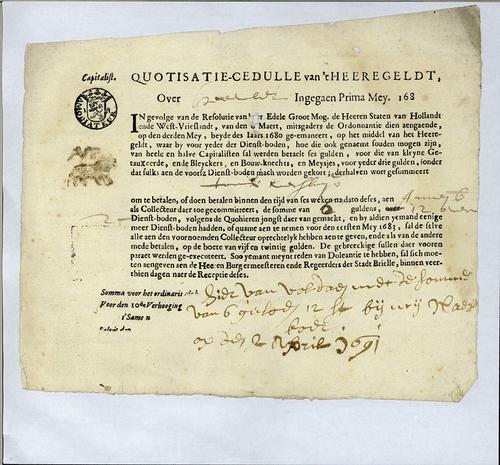 Capitalist. QUOTISATIE-CEDULLE van 't HEEREGELDT,
Over Ingegaen Prima Mey. 168
IN gevolge van de Resolutie van Edele Groot Mog. de Heeren Staten van Hollandt
ende West-Vrieslandt, van den Maert, mitsgaders de Ordonnantie dien aengaende,
op den derden Mey, beyde des Iaers 1680 ge-emaneert, op het middel van het Heere-
geldt, waar by voor yeder der Dienst-boden, hoe die ook genaemt souden mogen zijn,
van heele en halve Capitalisten sal werden betaelt ses gulden, voor die van kleyne Ge-
tauxeerde, ende Bleyckers, en Bouw-knechts, en Meysjes, voor yeder drie gulden, sonder
dat sulks aen de voorsz Dienst-boden mach worden gekort; derhalven wort gesommeert
om te betalen, of doen betalen binnen den tijd van ses weken na dato deses, aen
als Collecteur daer toe gecommitteert, de somme van guldens, over
Dienst-boden, volgens de Quohieren jongst daer van gemaekt, en by aldien yemand eenige
meer Dienst-boden hadden, of quame aen te nemen voor den eersten Mey 1683, sal de selve
alle aen den voornoemden Collecteur oprechtelyk hebben aen te geven, ende als van de andere
mede betalen, op de boete van vijf en twintig gulden. De gebreekige sullen daer vooren
paraet werden ge-executeert. Soo yemant meynt reden van Doleantie te hebben, sal sich moe-
ten aengeven aen de Hee en Burgermeesteren ende Regeerders der Stadt Brielle, binnen veer-
thien dagen naer de Receptie deses.
Somma voor het ordinaris
Voor den 10de Verhooging
't Samen
van 6 12 st bij mij
op den 12 April 1691